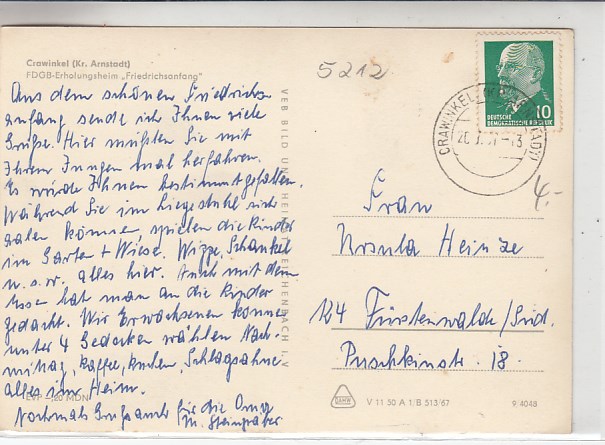 Crawinkel (Kr. Arnstadt)
FDGB-Erholungsheim „Friedrichsanfang"
Aus dem schönen Friedrichs-
anfang sende ich Ihnen viele
Grüße. Hier müßten Sie mit
Ihrem Jungen mal herfahren.
Es würde Ihnen bestimmt gefallen.
Während Sie im Liegestuhl sich
aalen können, spielen die Kinder
im Garten + Wiese. Wippe, Schaukel
u.s.w. alles hier. Auch mit dem
Essen hat man an die Kinder
gedacht. Wir Erwachsenen können
unter 4 Gedecken wählen. Nach-
mittag, Kaffee, Kuchen, Schlagsahne
alles im Heim.
Nochmals Gruß
M. Steingräber
EVP -,20 MDN
VEB BILD UND HEIM REICHENBACH I. V.
5212
DEUTSCHE
DEMOKRATISCHE REPUBLIK
10
CRAWINKEL (KR. ARNSTADT)
4.-
Frau
Ursula Heinze
124 Fürstenwalde/Süd.
Puschkinstr. 18.
V 11 50 A 1/B 513/67
9/4048